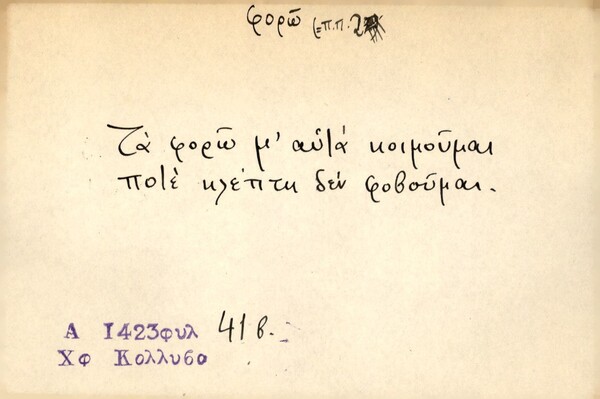 φορῶ
Τὰ φορῶ μ' αὐτὰ κοιμοῦμαι
ποτὲ κλέπτη δέν φοβοῦμαι.
Α 1423φυλ 41 β.
Χφ Κολλυβο